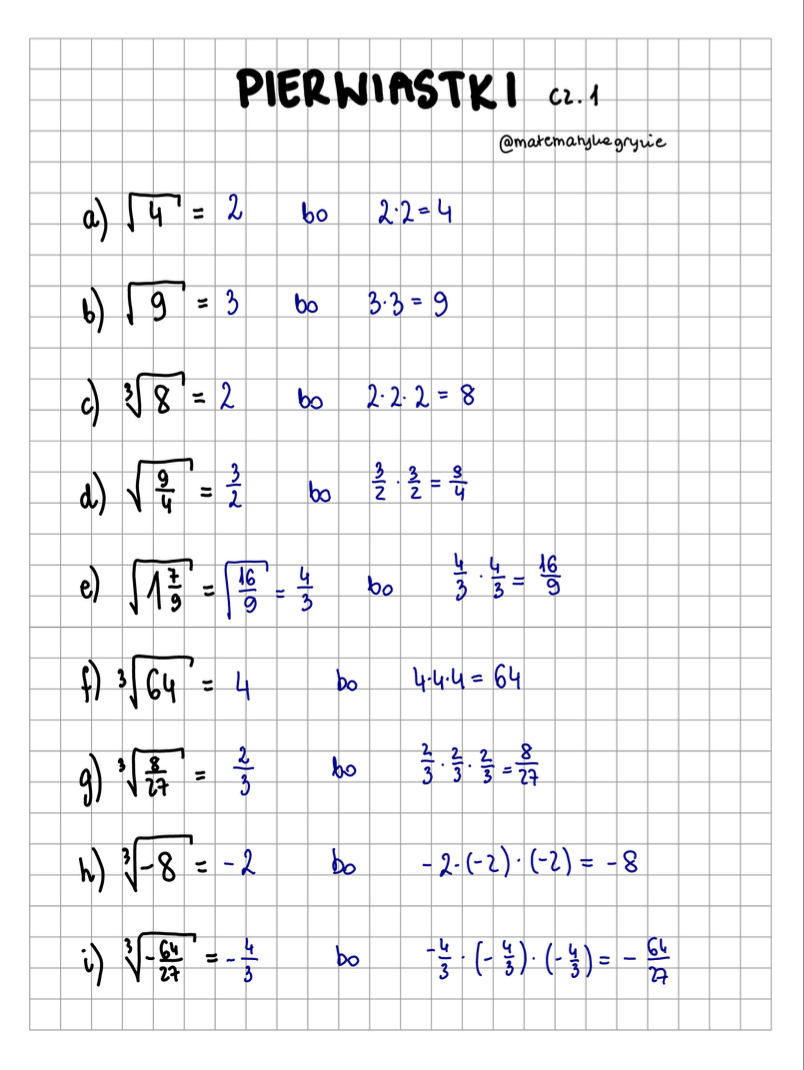 PIERWIASTKI cz. 1
@matematykagryzie
a) √4 = 2 bo 2·2 = 4
b) √9 = 3 bo 3·3 = 9
c) ∛8 = 2 bo 2·2·2 = 8
d) √(9/4) = 3/2 bo 3/2 · 3/2 = 9/4
e) √(1 7/9) = √(16/9) = 4/3 bo 4/3 · 4/3 = 16/9
f) ∛64 = 4 bo 4·4·4 = 64
g) ∛(8/27) = 2/3 bo 2/3 · 2/3 · 2/3 = 8/27
h) ∛-8 = -2 bo -2·(-2)·(-2) = -8
i) ∛(-64/27) = -4/3 bo -4/3 · (-4/3) · (-4/3) = - 64/27